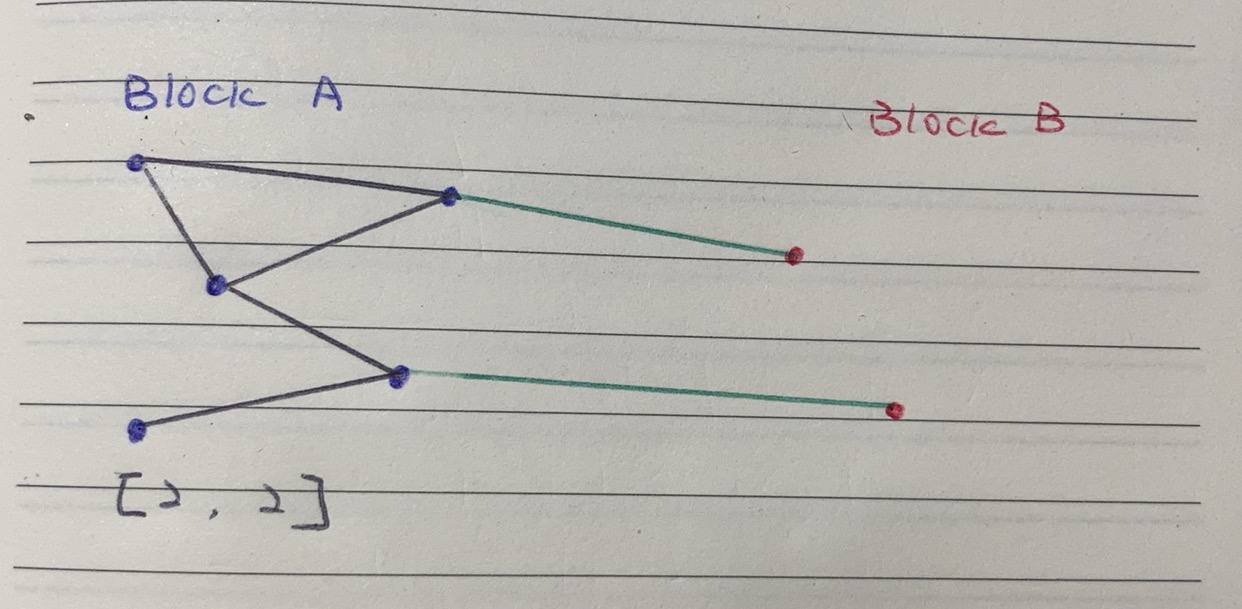 Block A
Block B
[2, 2]